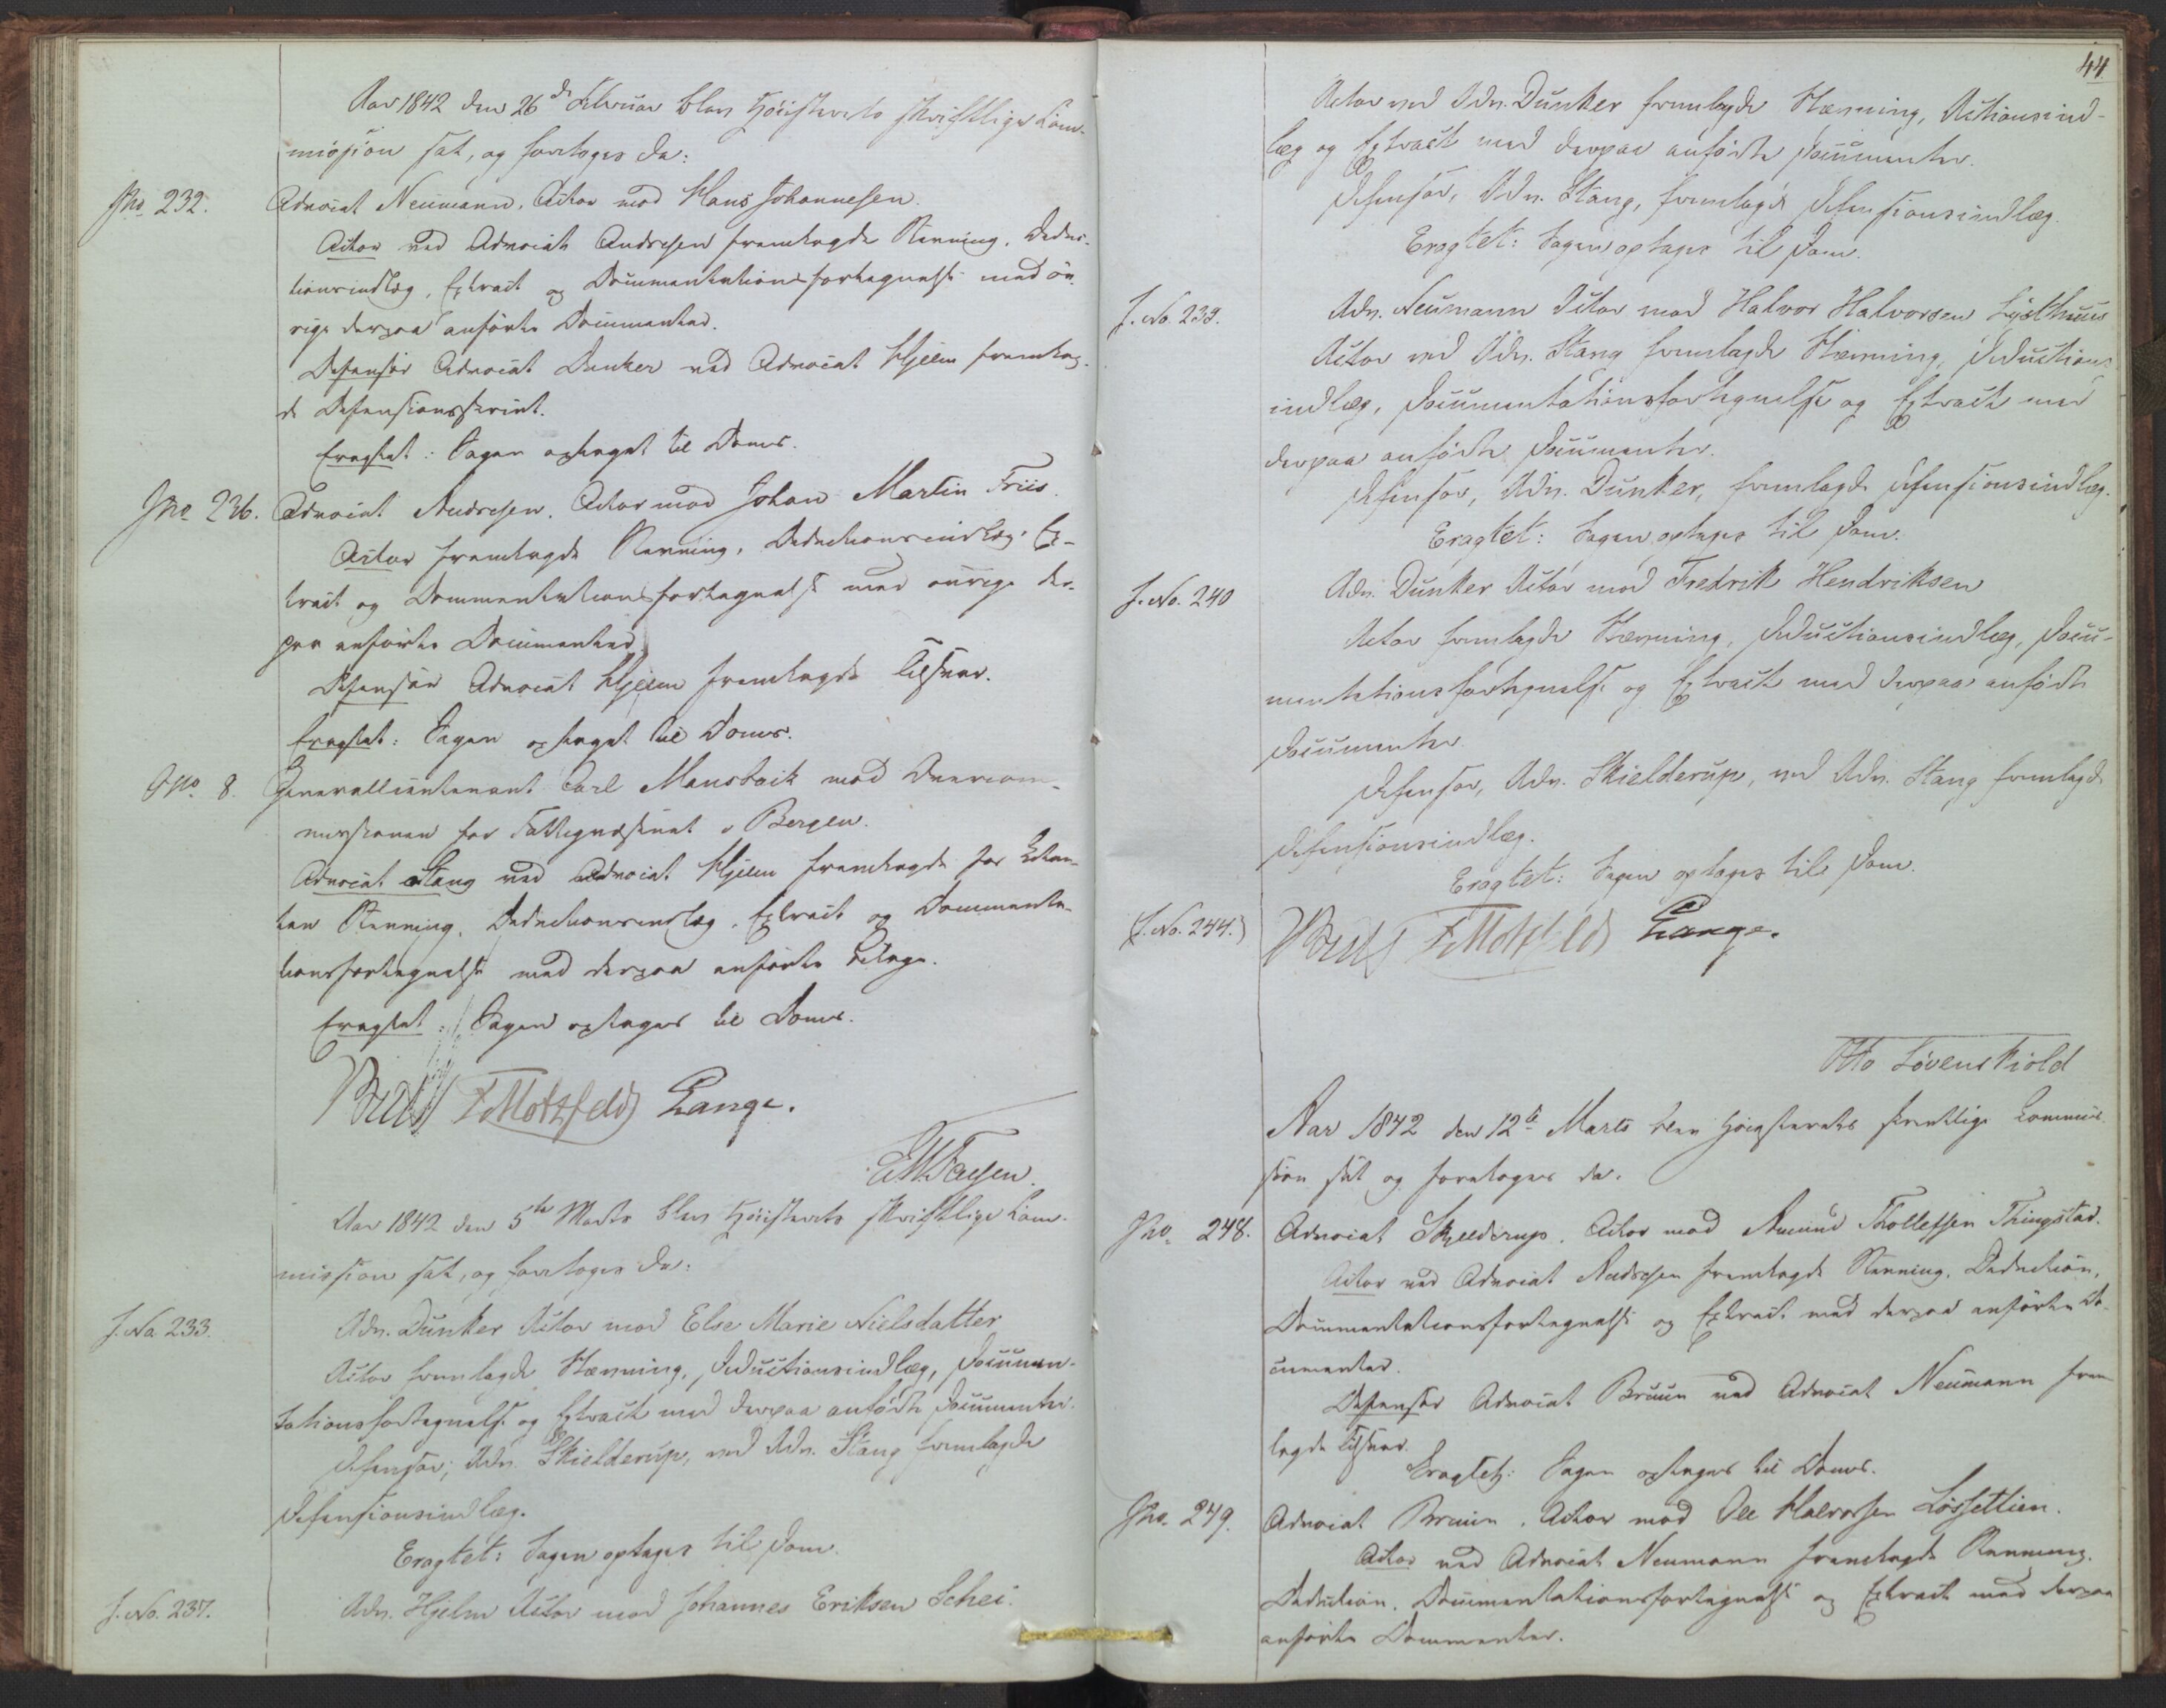 Aar 1842 den 26de Februar blev Høiesterets skriftlige Com-
mission sat, og foretoges da:
Jno 232. Advocat Neumann, Actor mod Hans Johannesen.
Actor ved Advocat Andresen fremlagde Stevning, Deduc-
tionsindlæg, Extract og Documentationsfortegnelse med øv-
rige derpaa anførte Documenter.
Defensor Advocat Dunker ved Advocat Hjelm fremlag-
de Defensionsskrivt.
Eragtet: Sagen optaget til Doms.
Jno 236. Advocat Andresen, Actor mod Johan Martin Friis.
Actor fremlagde Stevning, Deductionsindlæg, Ex-
tract og Documentationsfortegnelse med øvrige der-
paa anførte Documenter.
Defensor Advocat Hjelm fremlagde Tilsvar.
Eragtet: Sagen optaget til Doms.
Jno 8. Generallieutenant Carl Mansbach mod Overcom-
missionen for Fattigvæsenet i Bergen.
Advocat Stang ved Advocat Hjelm fremlagde for Citan-
ten Stevning, Deductionsindlæg, Extract og Documenta-
tionsfortegnelse med derpaa anførte Bilage.
Eragtet: Sagen optages til Doms.
F Motzfeldt Lange.
Aar 1842 den 5te Marts blev Høiesterets skriftlige Com-
mission sat, og foretoges da:
J. No. 233. Adv. Dunker Actor mod Else Marie Nielsdatter
Actor fremlagde Stævning, Deductionsindlæg, Documen-
tationsfortegnelse og Extract med derpaa anførte Documenter.
Defensor, Adv. Skielderup, ved Adv. Stang fremlagde
Defensionsindlæg.
Eragtet: Sagen optages til Dom.
J. No. 237. Adv. Hjelm Actor mod Johannes Eriksen Schei.
44.
Actor ved Adv. Dunker fremlagde Stævning, Actionsind-
læg og Extract med derpaa anførte Documenter.
Defensor, Adv. Stang, fremlagde Defensionsindlæg.
Eragtet: Sagen optages til Dom.
J. No. 239. Adv. Neumann Actor mod Halvor Halvorsen Lysthuus
Actor ved Adv. Stang fremlagde Stævning, Deductions-
indlæg, Documentationsfortegnelse og Extract med
derpaa anførte Documenter.
Defensor, Adv. Dunker, fremlagde Defensionsindlæg.
Eragtet: Sagen optages til Dom.
J. No. 240 Adv. Dunker Actor mod Fredrik Hendriksen
Actor fremlagde Stævning, Deductionsindlæg, Docu-
mentationsfortegnelse og Extract med derpaa anførte
Documenter.
Defensor, Adv. Skielderup, ved Adv. Stang fremlagde
Defensionsindlæg.
Eragtet: Sagen optages til Dom.
(J. No. 244.) F Motzfeldt Lange.
Otto Løvenskiold
Aar 1842 den 12te Marts blev Høiesterets skriftlige Commis-
sion sat og foretoges da.
Jno. 248. Advocat Skjelderup, Actor mod Amund Thollefsen Thingstad.
Actor ved Advocat Andresen fremlagde Stevning, Deduction,
Documentationsfortegnelse og Extract med derpaa anførte Do-
cumenter.
Defensor Advocat Bruun ved Advocat Neumann frem-
lagde Tilsvar.
Eragtet: Sagen optages til Doms.
Jno. 249. Advocat Bruun, Actor mod Ole Halvorsen Løssetlien.
Actor ved Advocat Neumann fremlagde Stevning,
Deduction, Documentationsfortegnelse og Extract med derpaa
anførte Documenter.